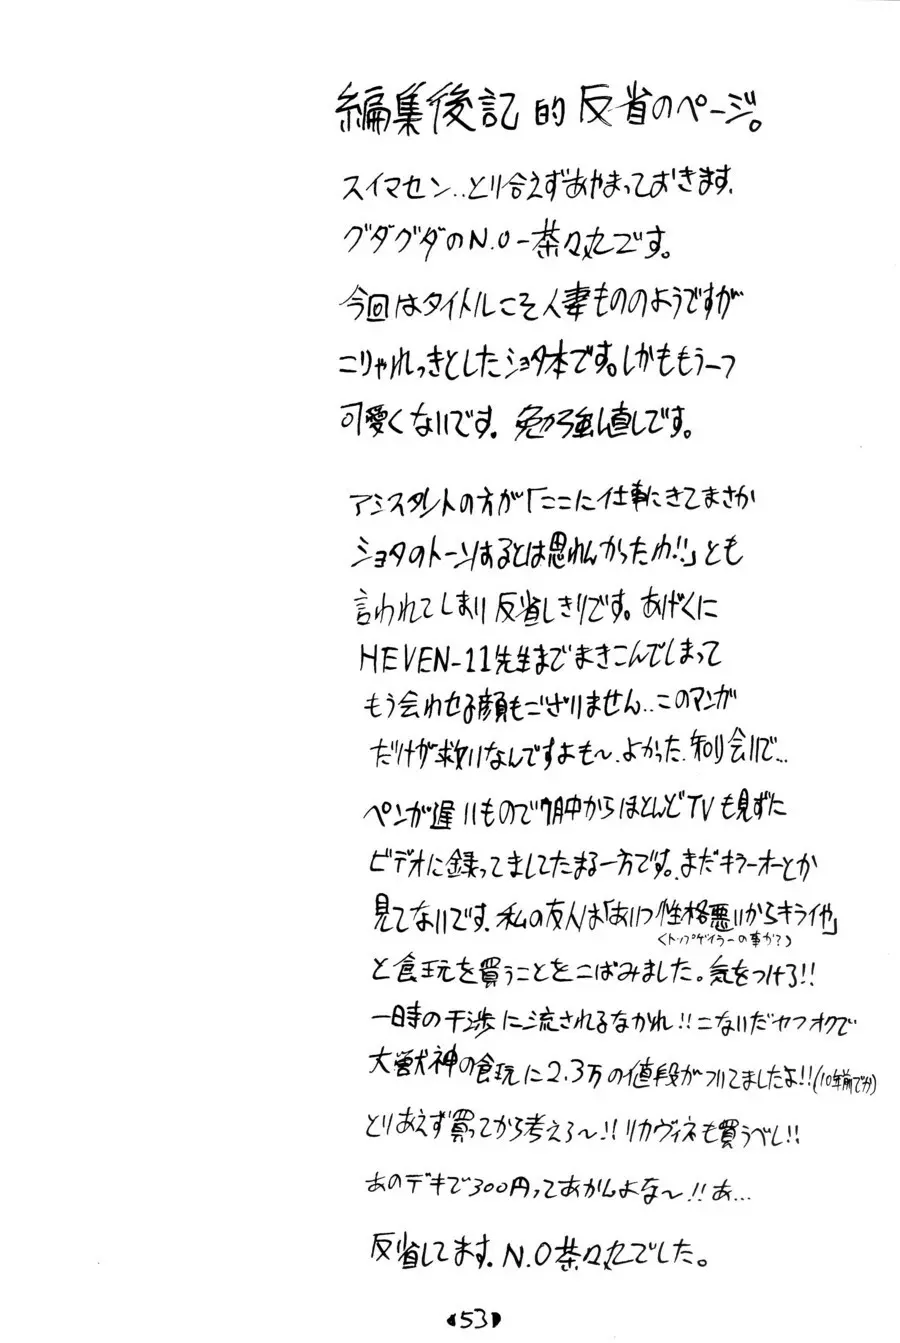 編集後記的反省のページ。
スイマセン‥とり合えずあやまっておきます.
グダグダのN.O-茶々丸です。
今回はタイトルこそ人妻もののようですが
こりゃれっきとしたショタ本です。しかももう一つ
可愛くないです. 勉強し直しです。
アシスタントの方が「ここに仕事にきてまさか
ショタのトーンはるとは思わんかったわ!!」とも
言われてしまい反省しきりです。あげくに
HEVEN-11先生までまきこんでしまって
もう会わせる顔もございません‥このマンガ
だけが救いなんですよも〜.よかった.知り会いで…
ペンが遅いもので7月中からほとんどTVも見ずに
ビデオに録ってましてたまる一方です。まだキラーオーとか
見てないです.私の友人は「あいつ性格悪いからキライや」
<トップゲイラーの事か?>
と食玩を買うことをこばみました。気をつけろ!!
一時の干渉に流されるなかれ!!こないだヤフオクで
大獣神の食玩に2.3万の値段がついてましたよ!!(10年前で分)
とりあえず買ってから考えろ〜!!リカヴィネも買うべし!!
あのデキで300円ってあかんよな〜!!あ…
反省してます.N.O茶々丸でした。
53